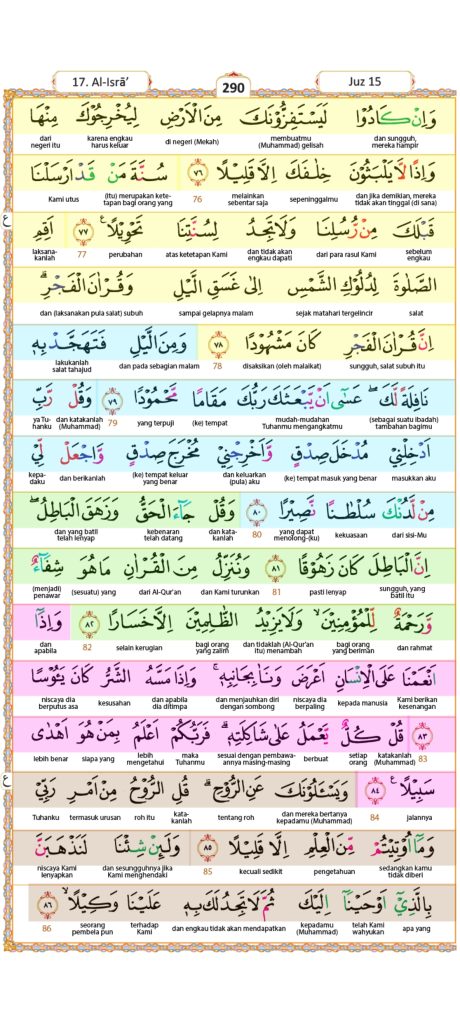 17. Al-Isrā’ 290 Juz 15
وَاِنْ كَادُوْا لَيَسْتَفِزُّوْنَكَ مِنَ الْاَرْضِ لِيُخْرِجُوْكَ مِنْهَا
dan sungguh, mereka hampir membuatmu (Muhammad) gelisah di negeri (Mekah) karena engkau harus keluar dari negeri itu
وَاِذًا لَّا يَلْبَثُوْنَ خِلٰفَكَ اِلَّا قَلِيْلًا ٧٦ سُنَّةَ مَنْ قَدْ اَرْسَلْنَا
dan jika demikian, mereka tidak akan tinggal (di sana) sepeninggalmu melainkan sebentar saja 76 (itu) merupakan kete-tapan bagi orang yang Kami utus
قَبْلَكَ مِنْ رُّسُلِنَا وَلَا تَجِدُ لِسُنَّتِنَا تَحْوِيْلًا ࣖ ٧٧ اَقِمِ
sebelum engkau dari para rasul Kami dan tidak akan engkau dapati atas ketetapan Kami perubahan 77 laksana-kanlah
الصَّلٰوةَ لِدُلُوْكِ الشَّمْسِ اِلٰى غَسَقِ الَّيْلِ وَقُرْاٰنَ الْفَجْرِۗ
salat sejak matahari tergelincir sampai gelapnya malam dan (laksanakan pula salat) subuh
اِنَّ قُرْاٰنَ الْفَجْرِ كَانَ مَشْهُوْدًا ٧٨ وَمِنَ الَّيْلِ فَتَهَجَّدْ بِهٖ
sungguh, salat subuh itu disaksikan (oleh malaikat) 78 dan pada sebagian malam lakukanlah salat tahajud
نَافِلَةً لَّكَۖ عَسٰٓى اَنْ يَّبْعَثَكَ رَبُّكَ مَقَامًا مَّحْمُوْدًا ٧٩ وَقُلْ رَّبِّ
(sebagai suatu ibadah) tambahan bagimu mudah-mudahan Tuhanmu mengangkatmu (ke) tempat yang terpuji 79 dan katakanlah (Muhammad) ya Tu-hanku
اَدْخِلْنِيْ مُدْخَلَ صِدْقٍ وَّاَخْرِجْنِيْ مُخْرَجَ صِدْقٍ وَّاجْعَلْ لِّيْ
masukkan aku (ke) tempat masuk yang benar dan keluarkan (pula) aku (ke) tempat keluar yang benar dan berikanlah kepa-daku
مِنْ لَّدُنْكَ سُلْطٰنًا نَّصِيْرًا ٨٠ وَقُلْ جَاۤءَ الْحَقُّ وَزَهَقَ الْبَاطِلُۖ
dari sisi-Mu kekuasaan yang dapat menolong-(ku) 80 dan kata-kanlah kebenaran telah datang dan yang batil telah lenyap
اِنَّ الْبَاطِلَ كَانَ زَهُوْقًا ٨١ وَنُنَزِّلُ مِنَ الْقُرْاٰنِ مَا هُوَ شِفَاۤءٌ
sungguh, yang batil itu pasti lenyap 81 dan Kami turunkan dari Al-Qur'an (sesuatu) yang (menjadi) penawar
وَّرَحْمَةٌ لِّلْمُؤْمِنِيْنَۙ وَلَا يَزِيْدُ الظّٰلِمِيْنَ اِلَّا خَسَارًا ٨٢ وَاِذَآ
dan rahmat bagi orang yang beriman dan tidaklah (Al-Qur'an itu) menambah bagi orang yang zalim selain kerugian 82 dan apabila
اَنْعَمْنَا عَلَى الْاِنْسَانِ اَعْرَضَ وَنَاٰ بِجَانِبِهٖۚ وَاِذَا مَسَّهُ الشَّرُّ كَانَ يَـُٔوْسًا
Kami berikan kesenangan kepada manusia niscaya dia berpaling dan menjauhkan diri dengan sombong dan apabila dia ditimpa kesusahan niscaya dia berputus asa
٨٣ قُلْ كُلٌّ يَّعْمَلُ عَلٰى شَاكِلَتِهٖۗ فَرَبُّكُمْ اَعْلَمُ بِمَنْ هُوَ اَهْدٰى
83 katakanlah (Muhammad) setiap orang berbuat sesuai dengan pembawa-annya masing-masing maka Tuhanmu lebih mengetahui siapa yang lebih benar
سَبِيْلًا ࣖ ٨٤ وَيَسْـَٔلُوْنَكَ عَنِ الرُّوْحِۗ قُلِ الرُّوْحُ مِنْ اَمْرِ رَبِّيْ
jalannya 84 dan mereka bertanya kepadamu (Muhammad) tentang roh kata-kanlah roh itu termasuk urusan Tuhanku
وَمَآ اُوْتِيْتُمْ مِّنَ الْعِلْمِ اِلَّا قَلِيْلًا ٨٥ وَلَىِٕنْ شِئْنَا لَنَذْهَبَنَّ
sedangkan kamu tidak diberi pengetahuan kecuali sedikit 85 dan sesungguhnya jika Kami menghendaki niscaya Kami lenyapkan
بِالَّذِيْٓ اَوْحَيْنَآ اِلَيْكَ ثُمَّ لَا تَجِدُ لَكَ بِهٖ عَلَيْنَا وَكِيْلًاۙ ٨٦
apa yang telah Kami wahyukan kepadamu (Muhammad) dan engkau tidak akan mendapatkan terhadap Kami seorang pembela pun 86
ع
ع